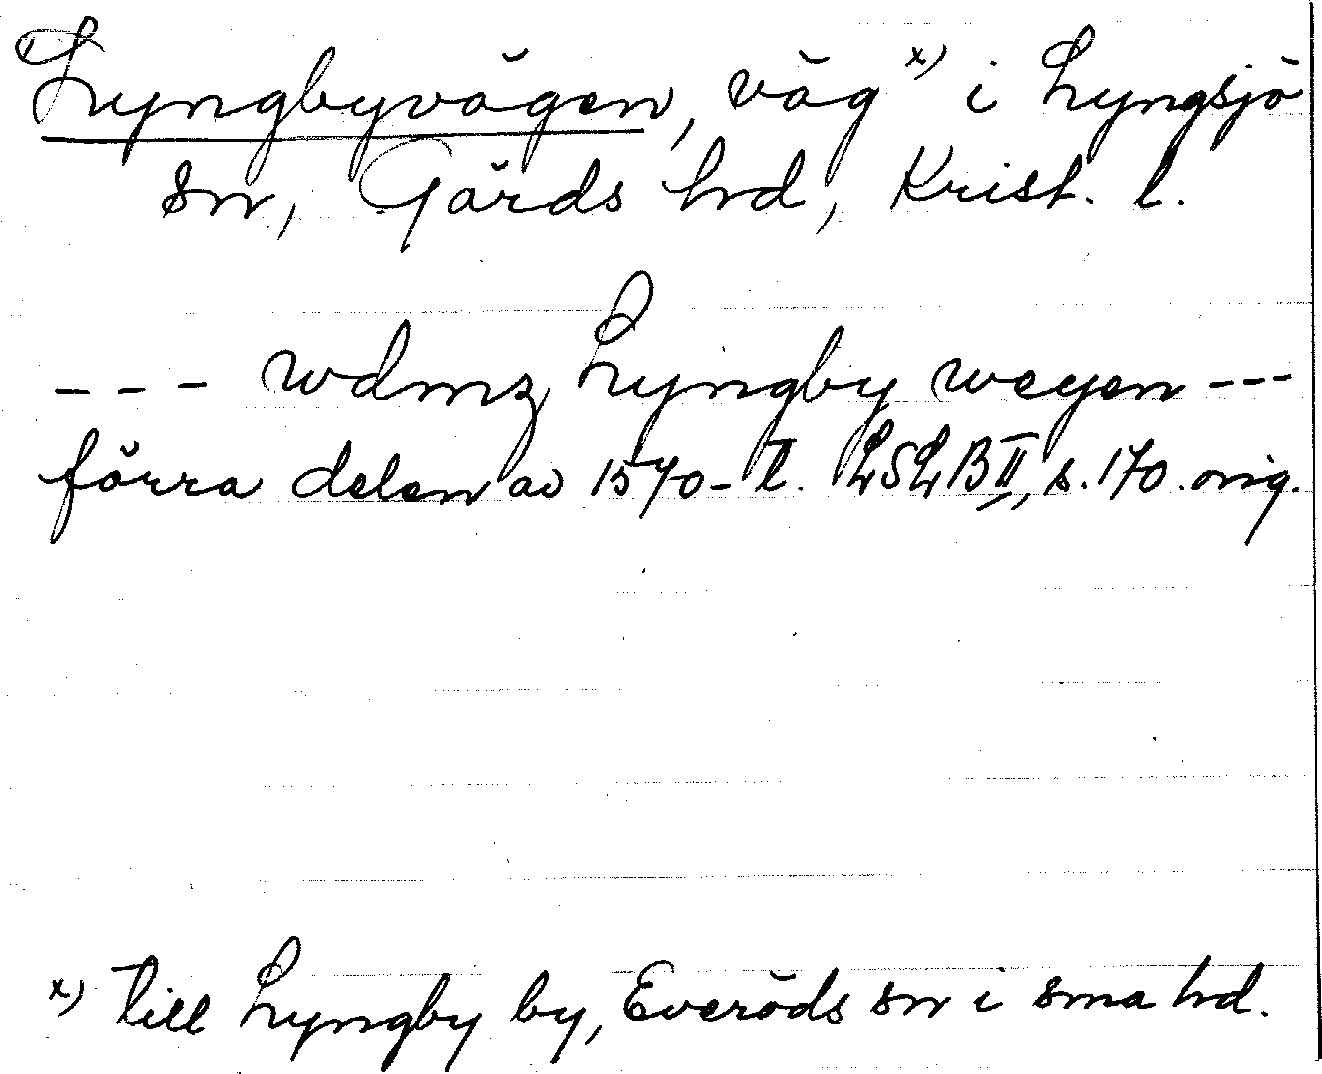 Lyngbyvägen, väg x) i Lyngsjö
sn, Gärds hrd, Krist. l.
--- wdmz Lyngby weyen ---
förra delen av 1570-t. LSLB II, s. 170. orig.
x) till Lyngby by, Everöds sn i sma hrd.